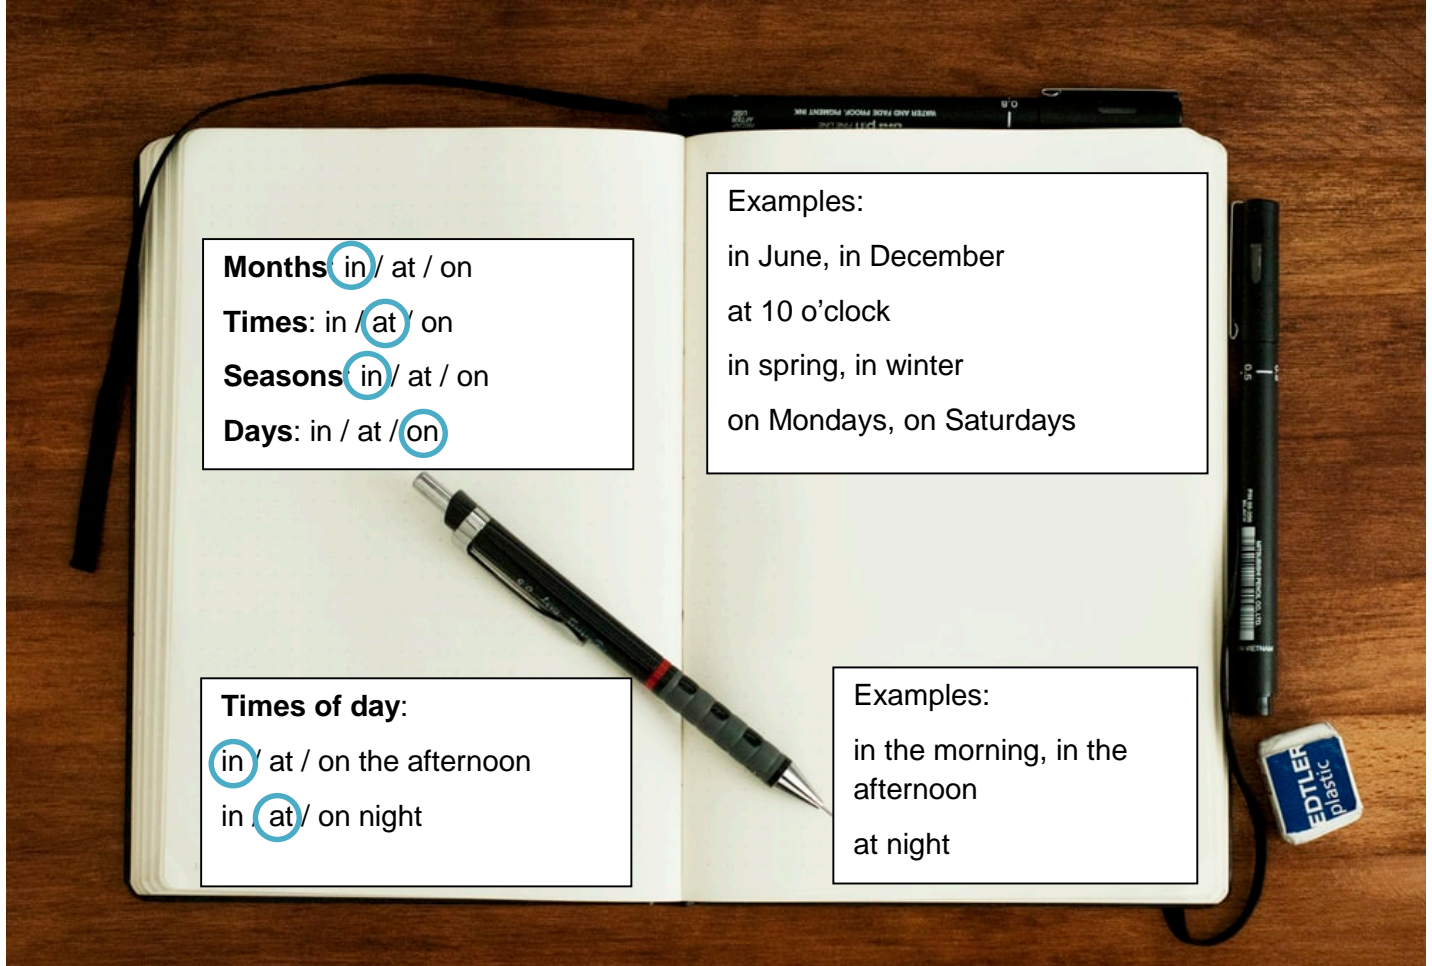 WATER AND FADE PROOF, PIGMENT INK
0.8
Months: in / at / on
Times: in / at / on
Seasons: in / at / on
Days: in / at / on
Examples:
in June, in December
at 10 o’clock
in spring, in winter
on Mondays, on Saturdays
0.5
MITSUBISHI PENCIL CO., LTD.
Times of day:
in / at / on the afternoon
in / at / on night
Examples:
in the morning, in the
afternoon
at night
EDTLER
plastic